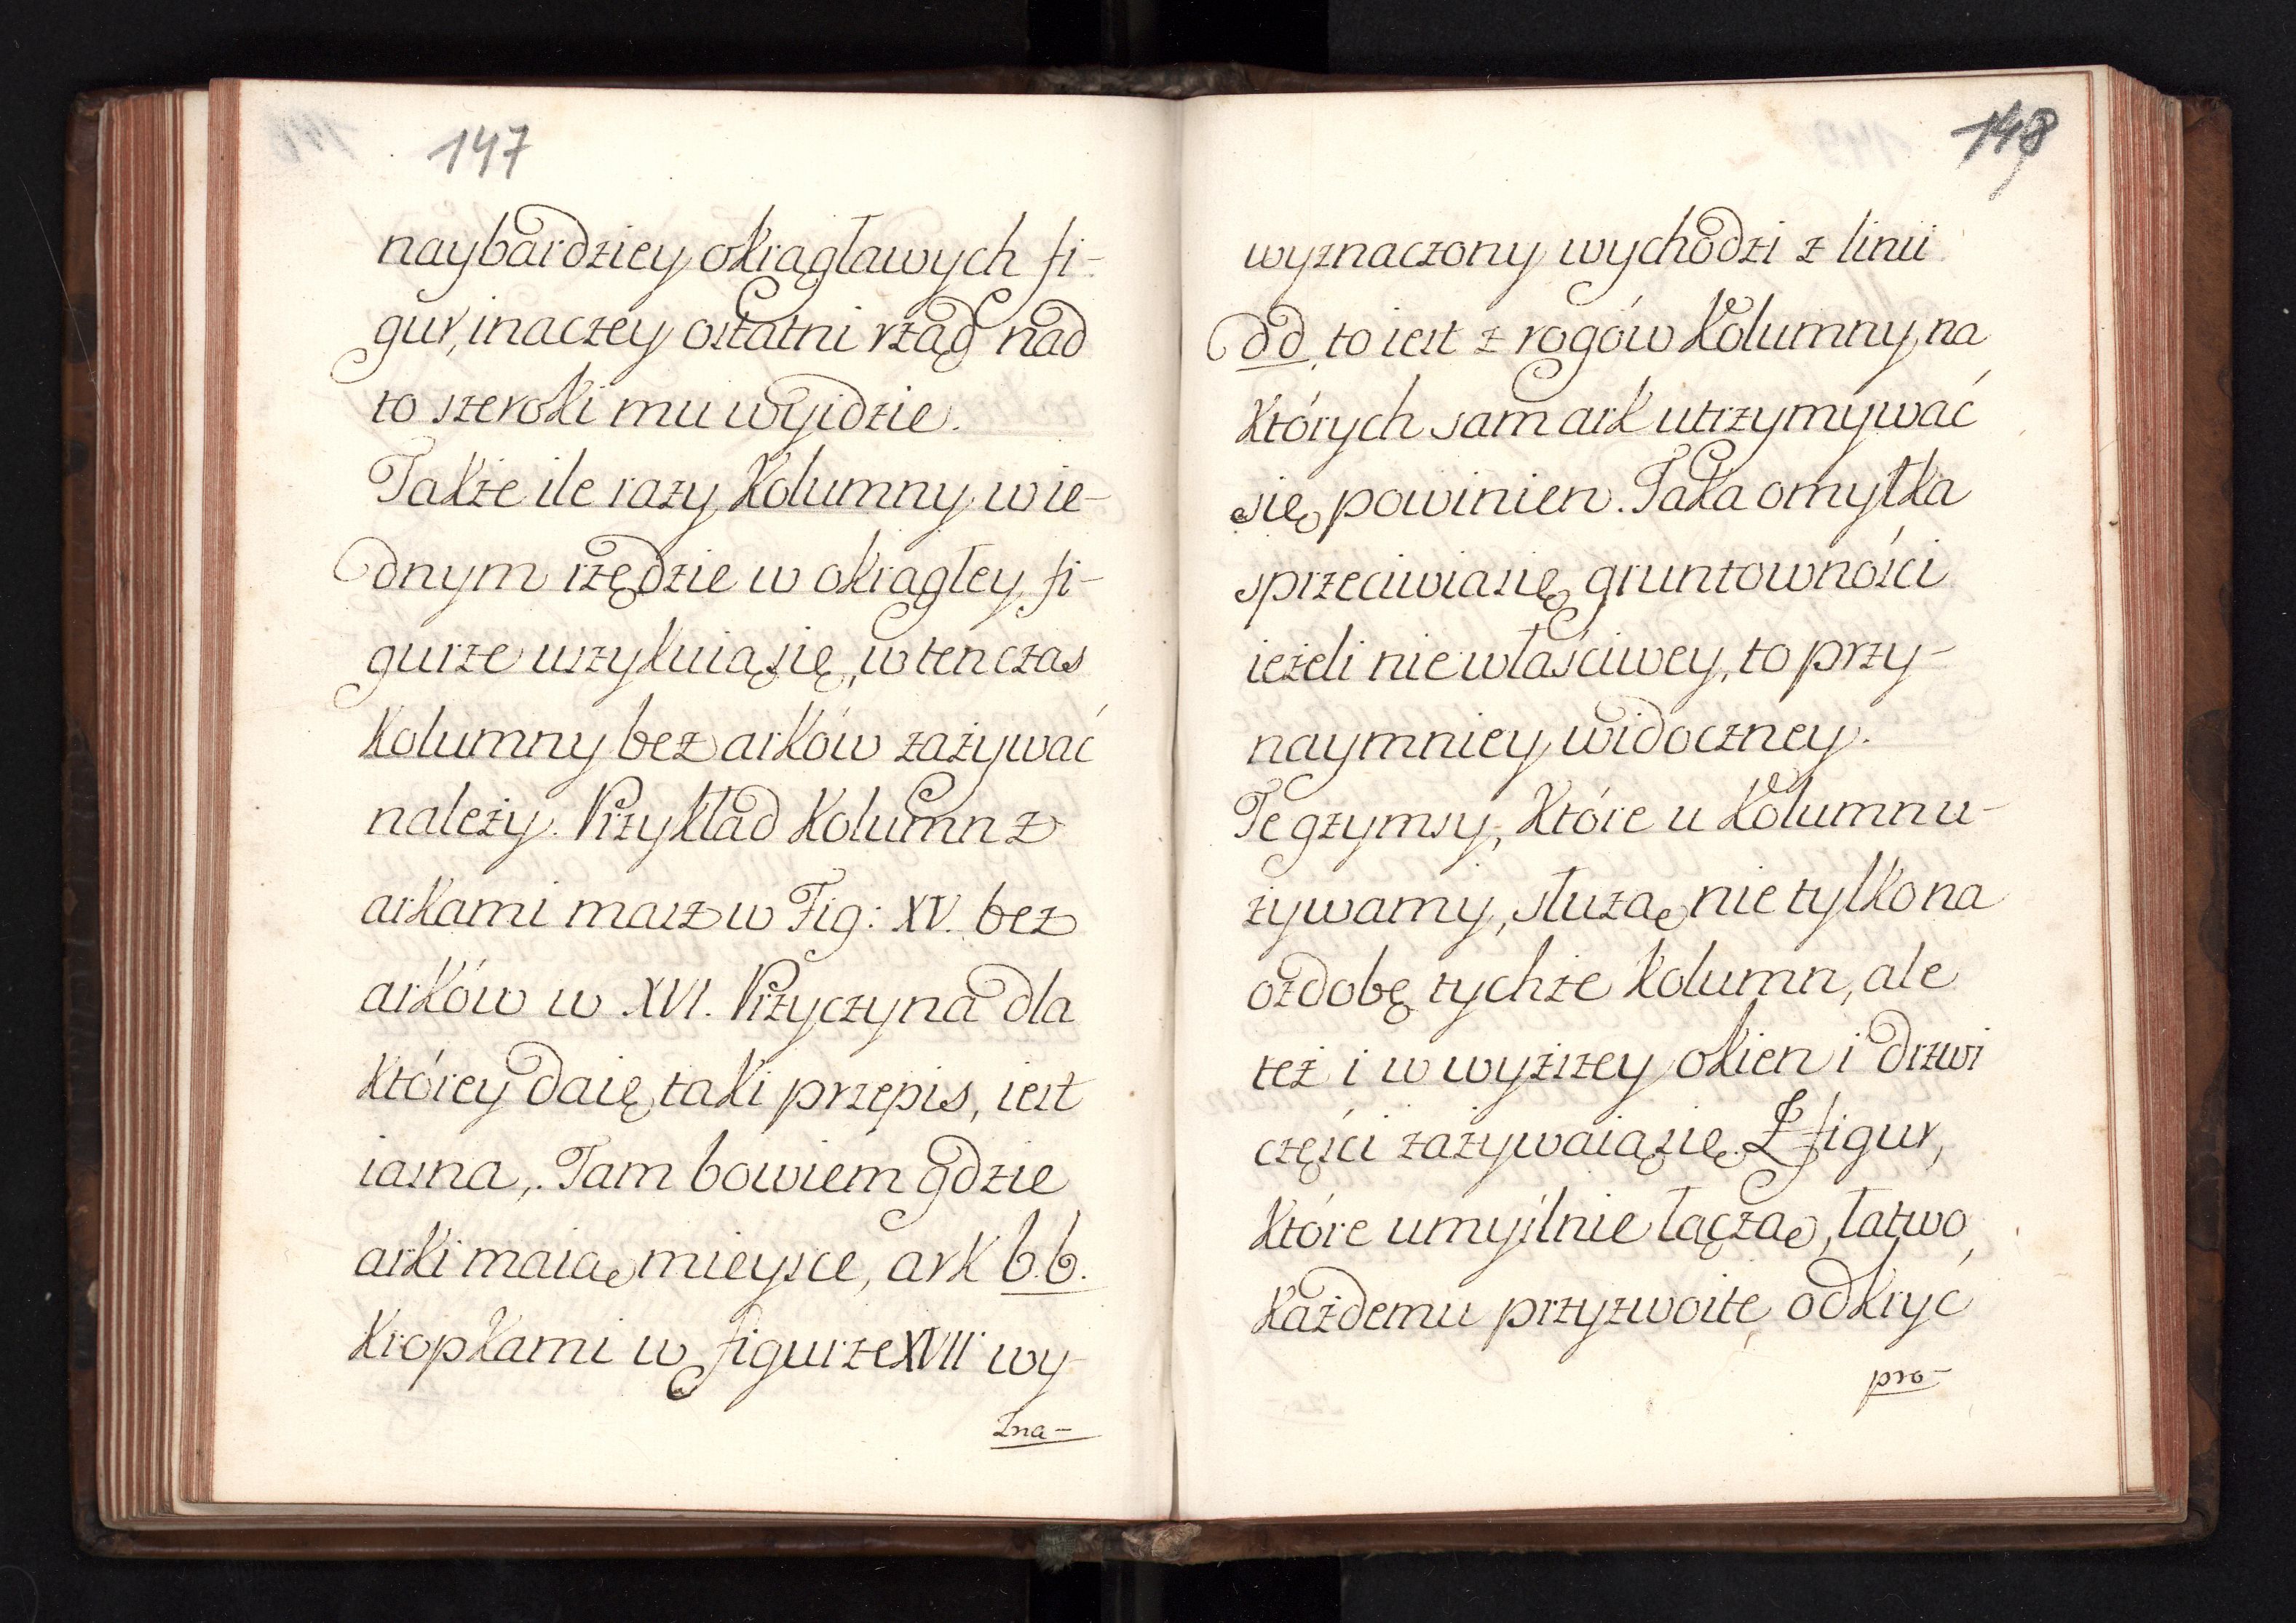 147
naybardziey okrągławych fi-
gur, inaczey ostatni rząd nad
to szeroki mu wyidzie.
Także ile razy Kolumny w ie-
dnym rzędzie w okrągłey fi-
gurze uszykuią się, w ten czas
Kolumny bez arków zażywać
należy. Przykład Kolumn z
arkami masz w Fig: XV. bez
arków w XVI. Przyczyna dla
Którey daię taki przepis, iest
iasna, Tam bowiem gdzie
arki maią mieysce, ark b.b.
Kropkami w figurze XVII wy-
zna-
148
wyznaczony wychodzi z linii
dd, to iest z rogów Kolumny, na
Których sam ark utrzymywać
się powinien. Taka omyłka
sprzeciwia się gruntowności
ieżeli nie właściwey, to przy-
naymniey widoczney.
Te gzymsy, Które u Kolumn u-
żywamy, służą nie tylko na
ozdobę tychże Kolumn, ale
też i w wyższey okien i drzwi
części zażywaią się. Z figur,
Które umyślnie łączą, łatwo
Każdemu przyzwoite odkryć
pro-